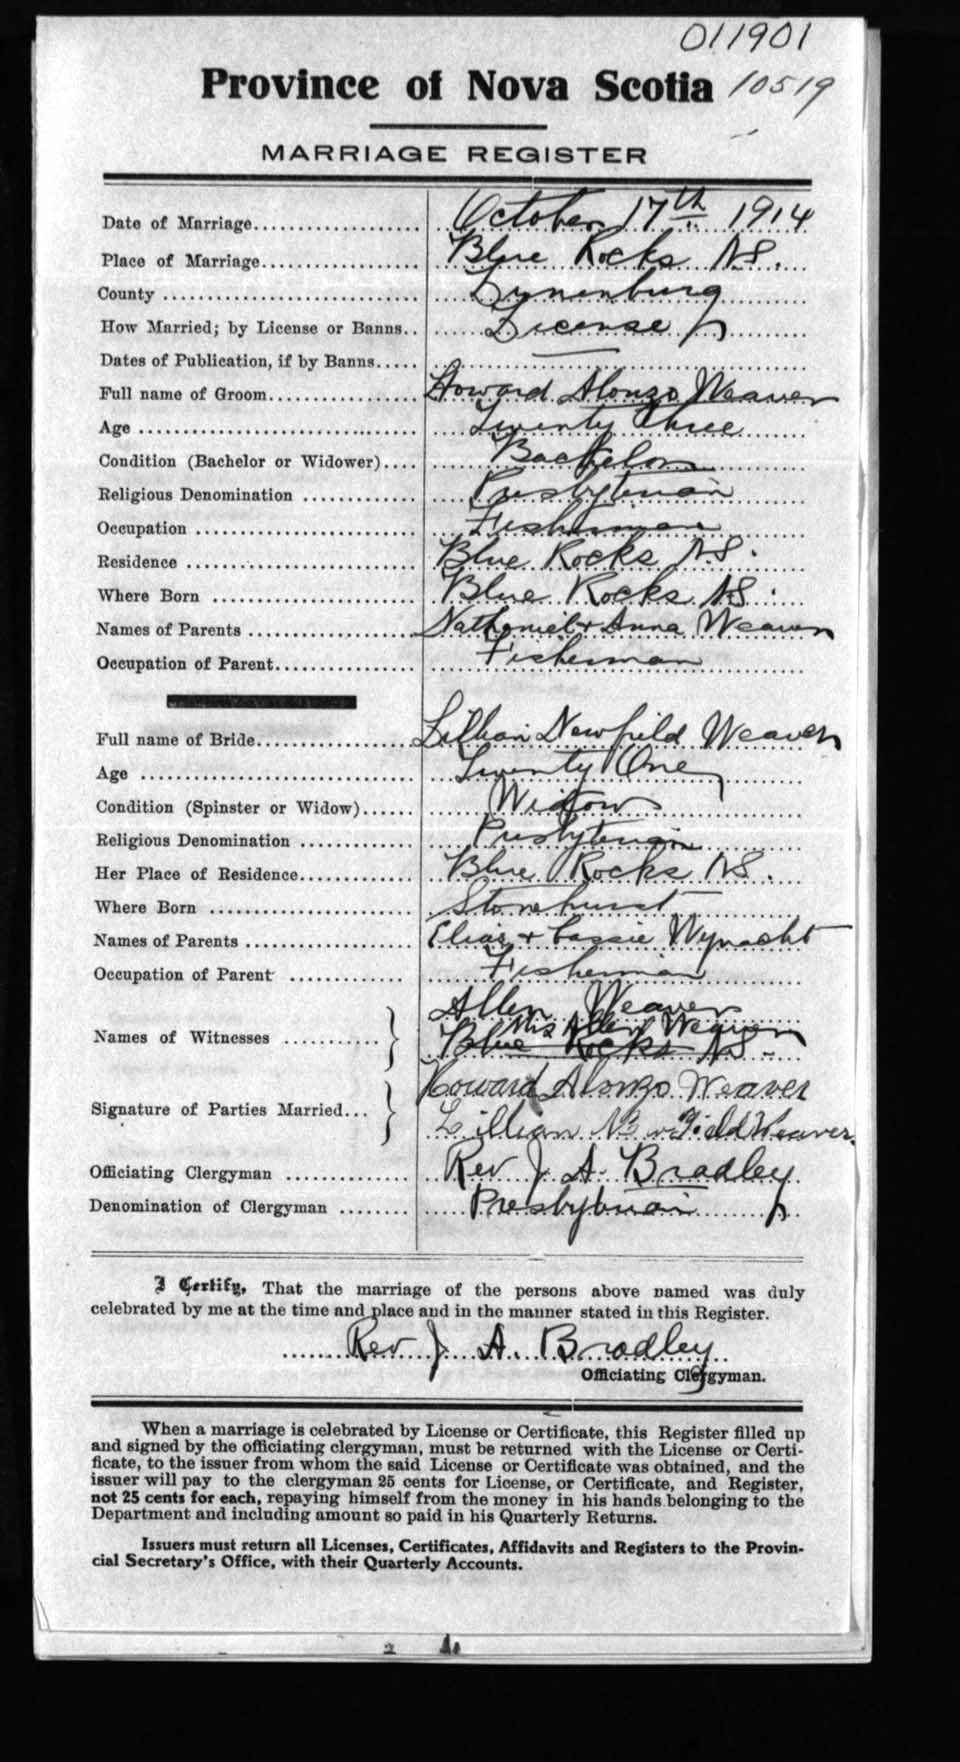 011901
Province of Nova Scotia 10519
MARRIAGE REGISTER
Date of Marriage.................... October 17th 1914
Place of Marriage................... Blue Rocks N.S.
County .............................. Lunenburg
How Married; by License or Banns.. License
Dates of Publication, if by Banns.....
Full name of Groom.................. Howard Alonzo Weaver
Age ................................. Twenty Three
Condition (Bachelor or Widower).... Bachelor
Religious Denomination ............. Presbyterian
Occupation .......................... Fisherman
Residence ........................... Blue Rocks N.S.
Where Born ........................ Blue Rocks N.S.
Names of Parents .................... Nathaniel + Anna Weaver
Occupation of Parent................. Fisherman
Full name of Bride................... Lillian Newfield Weaver
Age ................................. Twenty One
Condition (Spinster or Widow)...... Widow
Religious Denomination ............. Presbyterian
Her Place of Residence............. Blue Rocks N.S.
Where Born ........................ Stonehurst
Names of Parents .................... Elias + Cassie Wynacht
Occupation of Parent ............... Fisherman
Allen Weaver
Mrs Allen Weaver
Names of Witnesses ............ } Blue Rocks N.S.
Howard Alonzo Weaver
Signature of Parties Married... }
Lillian New Field Weaver.
Officiating Clergyman ............... Rev J. A. Bradley
Denomination of Clergyman ......... Presbyterian
I Certify, That the marriage of the persons above named was duly
celebrated by me at the time and place and in the manner stated in this Register.
Rev. J. A. Bradley
Officiating Clergyman.
When a marriage is celebrated by License or Certificate, this Register filled up
and signed by the officiating clergyman, must be returned with the License or Certi-
ficate, to the issuer from whom the said License or Certificate was obtained, and the
issuer will pay to the clergyman 25 cents for License, or Certificate, and Register,
not 25 cents for each, repaying himself from the money in his hands belonging to the
Department and including amount so paid in his Quarterly Returns.
Issuers must return all Licenses, Certificates, Affidavits and Registers to the Provin-
cial Secretary's Office, with their Quarterly Accounts.